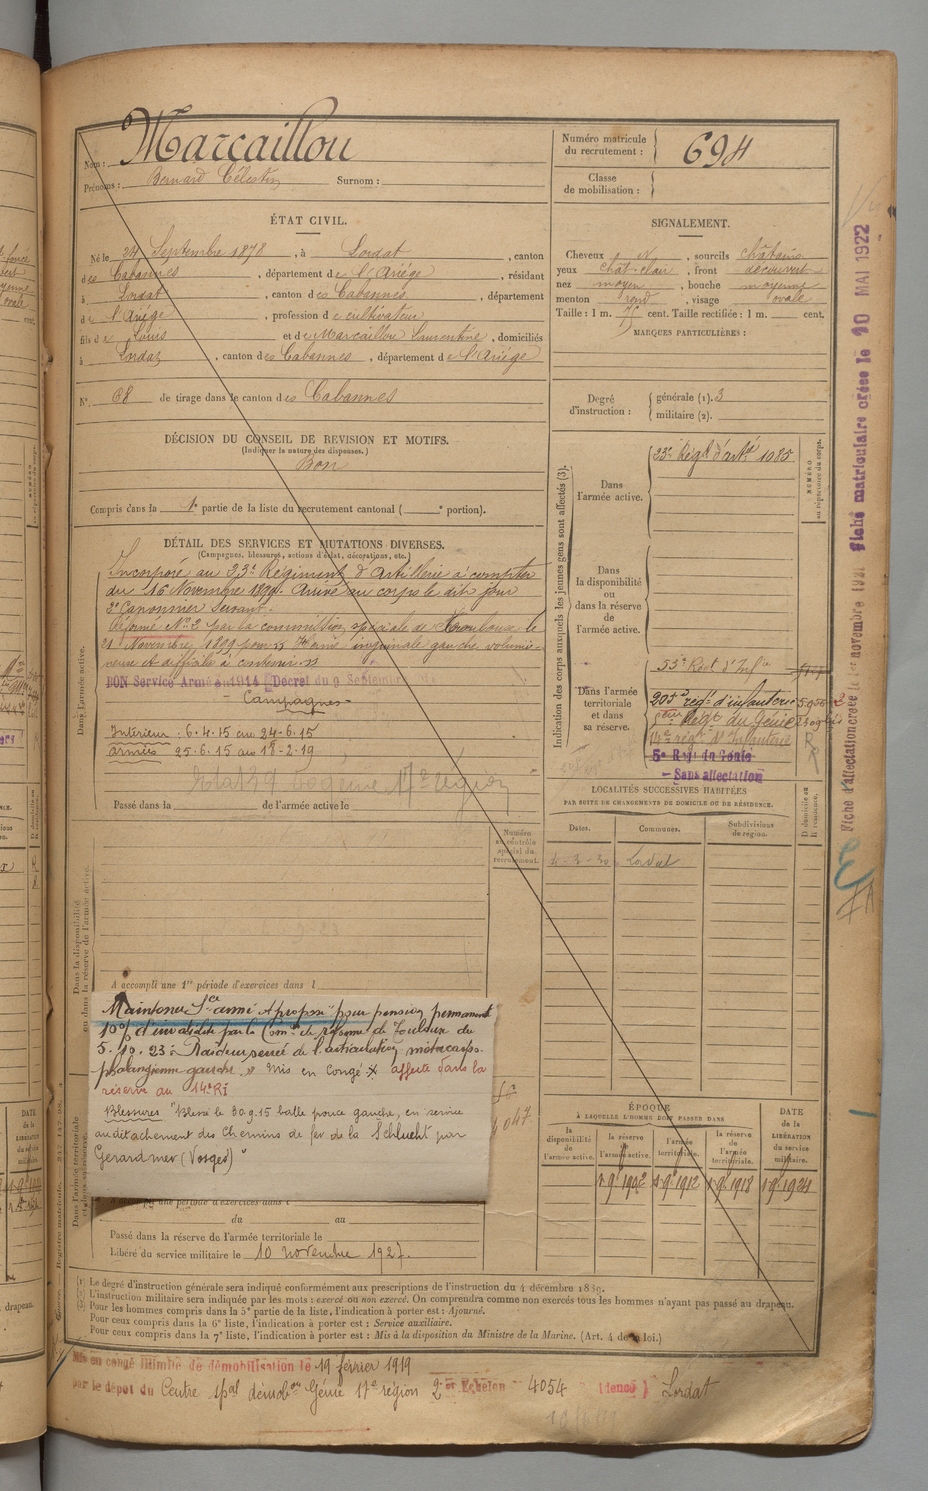 Nom : Marcaillou
Prénoms : Bernard Célestin Surnom :
Numéro matricule du recrutement : 694
Classe de mobilisation :
ÉTAT CIVIL.
Né le 24 Septembre 1878, à Lordat, canton
des Cabannes, département de l'Ariége, résidant
à Lordat, canton des Cabannes, département
de l'Ariége, profession de cultivateur
fils de Louis et de Marcaillou Laurentine, domiciliés
à Lordat, canton des Cabannes, département de l'Ariége
N° 88 de tirage dans le canton des Cabannes
SIGNALEMENT.
Cheveux, sourcils châtains
yeux chât-clair, front découvert
nez moyen, bouche moyenne
menton rond, visage ovale
Taille : 1 m. cent. Taille rectifiée : 1 m. cent.
MARQUES PARTICULIÈRES :
Degré d'instruction : générale (1). 3
militaire (2).
DÉCISION DU CONSEIL DE REVISION ET MOTIFS.
(Indiquer la nature des dispenses.)
Bon
Compris dans la 1e partie de la liste du recrutement cantonal ( e portion).
DÉTAIL DES SERVICES ET MUTATIONS DIVERSES.
(Campagnes, blessures, actions d'éclat, décorations, etc.)
Incorporé au 23e Régiment d'Artillerie à compter
du 16 Novembre 1899. Arrivé au corps le dit jour
2e Canonnier Servant.
Réformé No 2 par la commission spéciale de Toulouse le
21 Novembre 1899 pour Hernie inguinale gauche volumi-
neuse et difficile à contenir
BON Service Armé Décret du 9 Septembre 1914
Campagnes
Intérieur : 6.4.15 au 24.6.15
Armées 25.6.15 au 18.2.19
Passé dans la de l'armée active le
Dans l'armée active.
Indication des corps auxquels les jeunes gens sont affectés (3).
Dans l'armée active.
23e Régt d'artie 1085
NUMÉRO au répertoire du corps.
Dans la disponibilité ou dans la réserve de l'armée active.
Dans l'armée territoriale et dans sa réserve.
53e Regt d'Infie
régt d'infanterie
Régt du Génie
14e régt d'Infanterie
5e Regt du Génie
- Sans affectation
LOCALITÉS SUCCESSIVES HABITÉES
PAR SUITE DE CHANGEMENTS DE DOMICILE OU DE RÉSIDENCE.
Dates. Communes. Subdivisions de région. D domicile ou R résidence.
Lordat
Numéro au contrôle spécial du recrutement.
Dans la disponibilité ou dans la réserve de l'armée active.
A accompli une 1re période d'exercices dans l
Maintenu Sce armé et proposé pour pension permanent
10% d'invalidité par la Comon de réforme de Toulouse du
5.10.23 : Raideur serrée de l'articulation métacarpo.
phalangienne gauche. Mis en Congé affecté dans la
réserve au 14e RI
Blessures "Blessé le 30.9.15 balle pouce gauche, en service
au détachement des Chemins de fer de la Schlucht par
Gerardmer (Vosges)"
du au
Passé dans la réserve de l'armée territoriale le
Libéré du service militaire le 10 novembre 1927.
ÉPOQUE
À LAQUELLE L'HOMME DOIT PASSER DANS
DATE de la LIBÉRATION du service militaire.
la disponibilité de l'armée active. la réserve de l'armée active. l'armée territoriale. la réserve de l'armée territoriale.
1.9bre 1902 1.9bre 1912 1.9bre 1918 1.9bre 1924
(1) Le degré d'instruction générale sera indiqué conformément aux prescriptions de l'instruction du 4 décembre 1889.
(2) L'instruction militaire sera indiquée par les mots : exercé ou non exercé. On comprendra comme non exercés tous les hommes n'ayant pas passé au drapeau.
(3) Pour les hommes compris dans la 5e partie de la liste, l'indication à porter est : Ajourné.
Pour ceux compris dans la 6e liste, l'indication à porter est : Service auxiliaire.
Pour ceux compris dans la 7e liste, l'indication à porter est : Mis à la disposition du Ministre de la Marine. (Art. 4 de la loi.)
Mis en congé illimité de démobilisation le 19 février 1919
par le dépôt du Centre spal démobon Génie 17e région 2e Echelon 4054 Lordat
Fiche matriculaire créée le 10 MAI 1922
Fiche d'affectation créée le novembre 1921